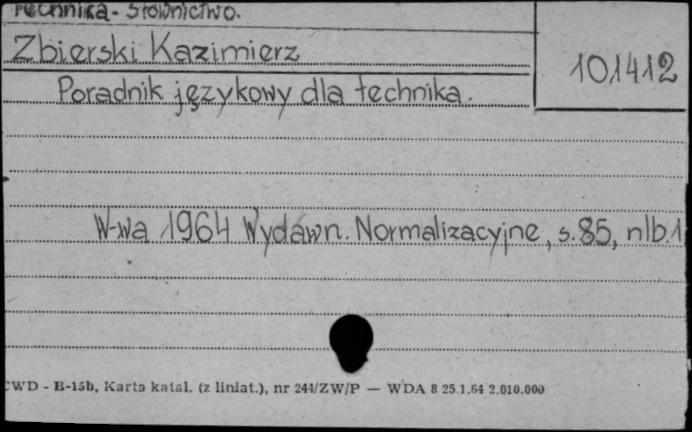 Technika - słownictwo.
Zbierski Kazimierz
101412
Poradnik językowy dla technika.
W-wa 1964 Wydawn. Normalizacyjne, s. 85, nlb. 1
CWD - B-15b, Karta katal. (z liniat.), nr 244/ZW/P — WDA 8 25.1.64 2.010.000